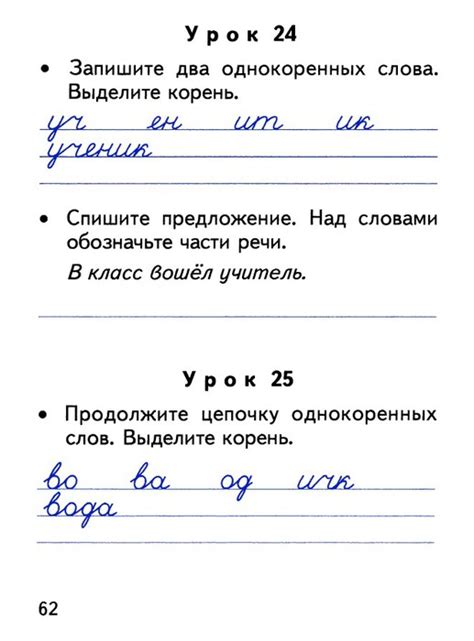 Урок 24
• Запишите два однокоренных слова.
Выделите корень.
уч ен ит ик
ученик
• Спишите предложение. Над словами
обозначьте части речи.
В класс вошёл учитель.
Урок 25
• Продолжите цепочку однокоренных
слов. Выделите корень.
во ва од ичк
вода
62